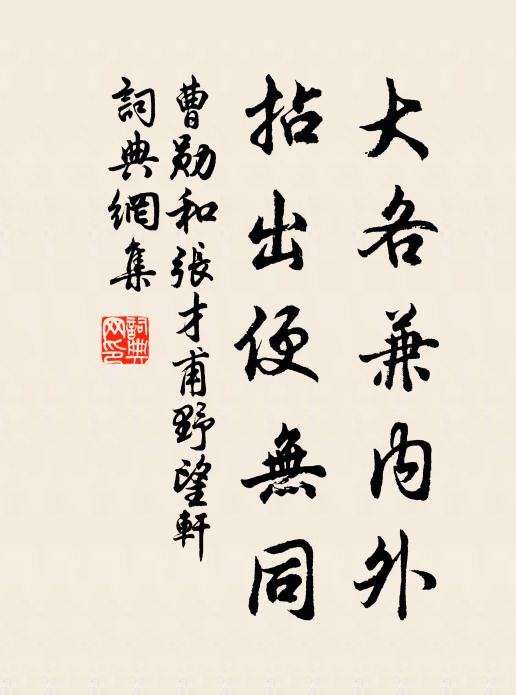 大各兼内外
拈出便無同
曹勛和張才甫野望軒
詞典網集
詞典
网印